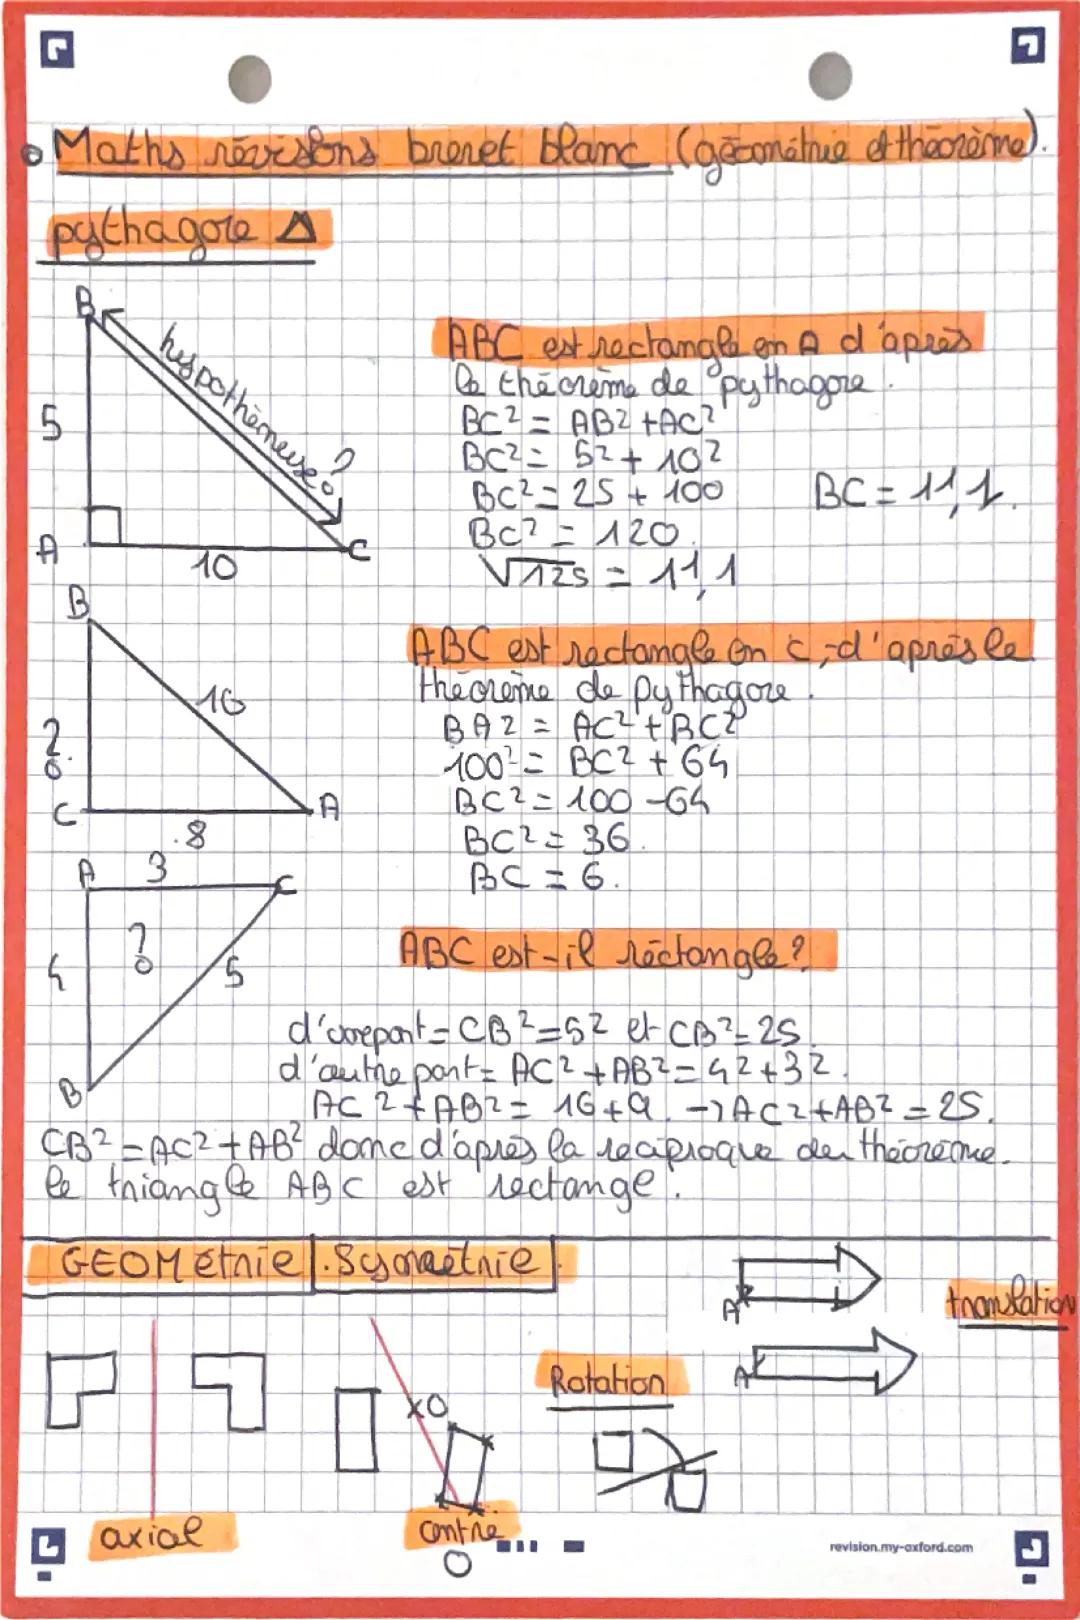 Maths révisions brevet blanc (géométrie et théorème).
pythagore
B
hypothénuse?
5
A
10
C
ABC est rectangle en A d'après
le théorème de pythagore.
BC² = AB² + AC²
BC² = 5² + 10²
BC² = 25 + 100
BC² = 120.
√125 = 11,1
BC = 11,1.
B
16
?
C
8
A
ABC est rectangle en C, d'après le
théorème de pythagore.
BA² = AC² + BC²
100² = BC² + 64
BC² = 100 - 64
BC² = 36.
BC = 6.
A
3
C
4
?
5
B
ABC est-il réctangle?
d'une part = CB² = 5² et CB² = 25.
d'autre part = AC² + AB² = 4² + 3².
AC² + AB² = 16 + 9. → AC² + AB² = 25.
CB² = AC² + AB² donc d'après la réciproque du théorème.
le triangle ABC est rectange.
GEOMétrie
. Symétrie
A
translation
A
Rotation
xO
axial
centre
O
revision.my-oxford.com